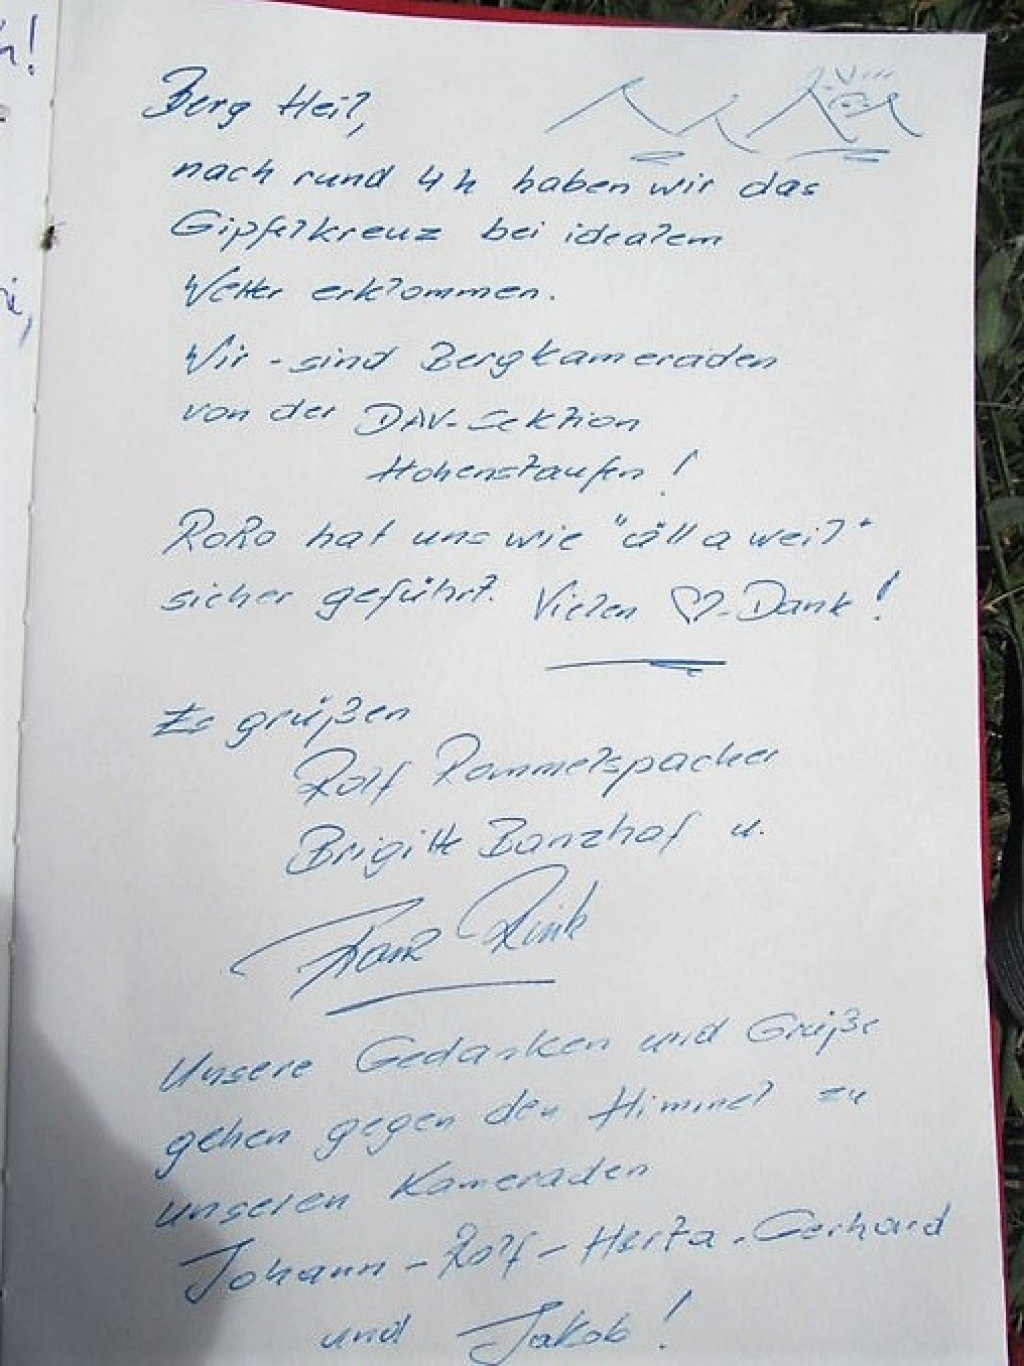 Berg Heil,
nach rund 4h haben wir das
Gipfelkreuz bei idealem
Wetter erklommen.
Wir - sind Bergkameraden
von der DAV-Sektion
Hohenstaufen!
RoRo hat uns wie "äll a weil"
sicher geführt. Vielen ♡-Dank!
Es grüßen
Rolf Rommelspacher
Brigitte Banzhof u.
Franz Rink
Unsere Gedanken und Grüße
gehen gegen den Himmel zu
unseren Kameraden
Johann - Rolf - Herta - Gerhard
und Jakob!